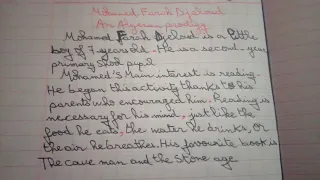 Mohamed Farih Djeloud
An Algerian prodigy
Mohamed Farih Djeloud is a little
boy of 7 years old. He is a second-year
primary Shool pupil
Mohamed's Main interest is reading.
He began this activity thanks to his
parents who encouraged him. Reading is
necessary for his mind, just like the
food he eats, the water he drinks, or
the air he breathes. His favourite book is
The cave man and the Stone age